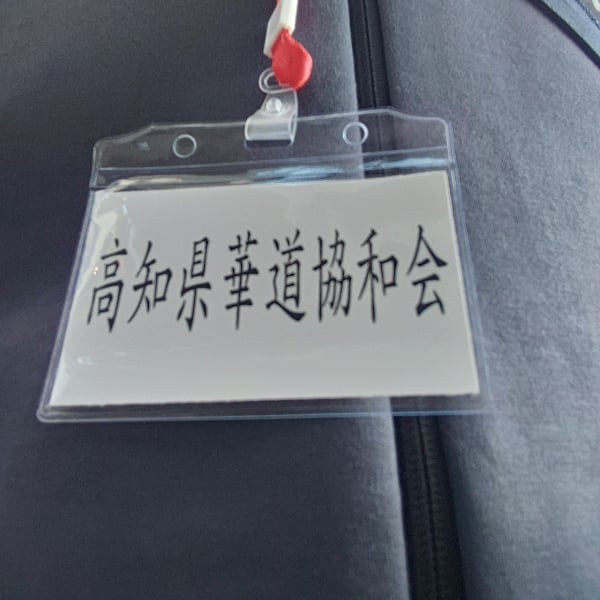 高知県華道協和会